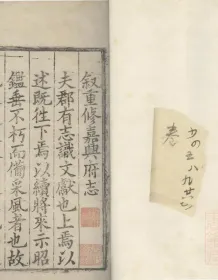 叙重修嘉興府志
夫郡有志識文獻也上焉以
述既往下焉以續將來示昭
鑑垂不朽而備采風者也故